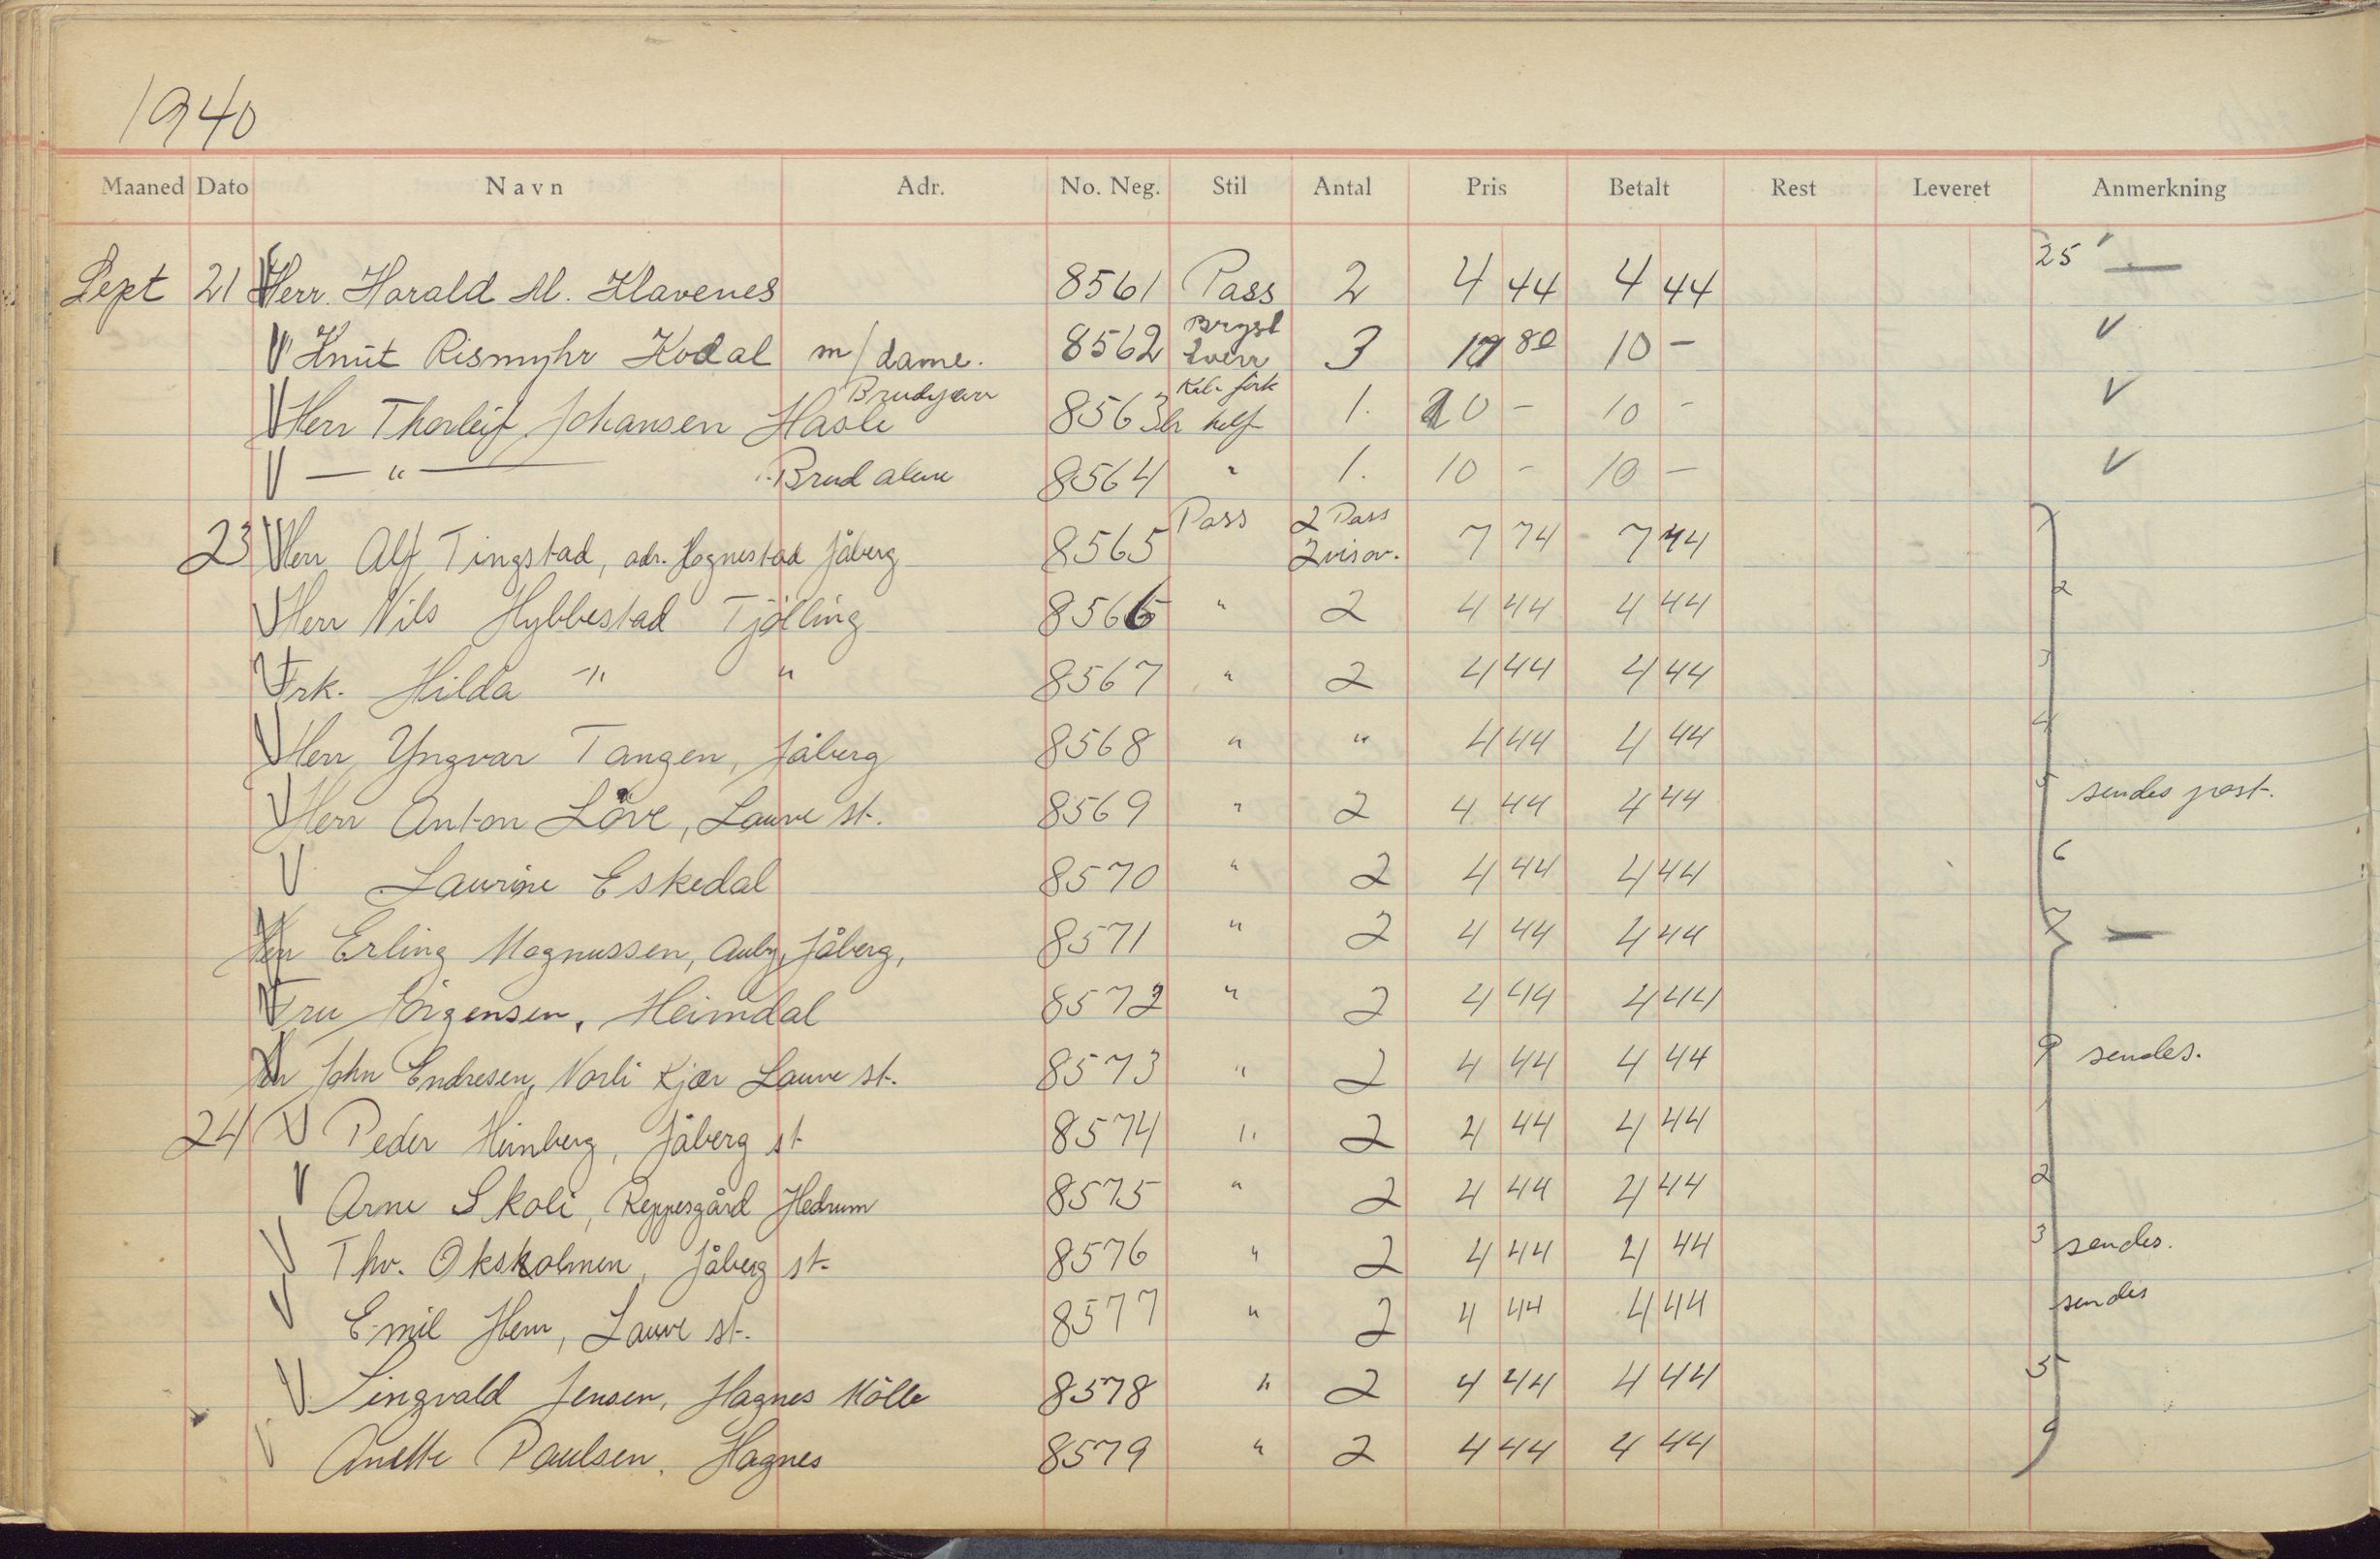 1940
Maaned Dato Navn Adr. No. Neg. Stil Antal Pris Betalt Rest Leveret Anmerkning
Sept 21 Herr. Harald M. Klavenes 8561 Pass 2 4 44 4 44 25
V Knut Rismyhr Kodal m/dame. 8562 Bryst 3 80 10 -
V Herr Thorleif Johansen Hasle Brudepar 8563 helf 1. 10 -
V — " — Brud alene 8564 " 1. 10 - 10 - V
23 V Herr Alf Tingstad, adr. Hognestad Jåberg 8565 Pass 2 Pass 2 visor. 7 74 7 74
V Herr Nils Hybbestad Tjölling 8566 " 2 4 44 4 44 2
V Frk. Hilda " " 8567 " 2 4 44 4 44 3
V Herr Yngvar Tangen, Jåberg 8568 " " 4 44 4 44 4
V Herr Anton Löve, Lauve st. 8569 " 2 4 44 4 44 5 sendes post.
V Laurine Eskedal 8570 " 2 4 44 4 44 6
V Herr Erling Magnussen, Auby, Jåberg, 8571 " 2 4 44 4 44 7 —
V Fru Jörgensen, Heimdal 8572 " 2 4 44 4 44
V Herr John Endresen, Norli Kjær Lauve st. 8573 " 2 4 44 4 44 9 sendes.
24 V Peder Heimberg, Jåberg st 8574 " 2 4 44 4 44 1
V Arne Skoli, Reppesgård Hedrum 8575 " 2 4 44 4 44 2
V Thv. Oksholmen, Jåberg st. 8576 " 2 4 44 4 44 3 sendes.
V Emil Hem, Lauve st. 8577 " 2 4 44 4 44 sendes
V Singvald Jensen, Hagnes Mölle 8578 " 2 4 44 4 44 5
V Anette Paulsen, Hagnes 8579 " 2 4 44 4 44